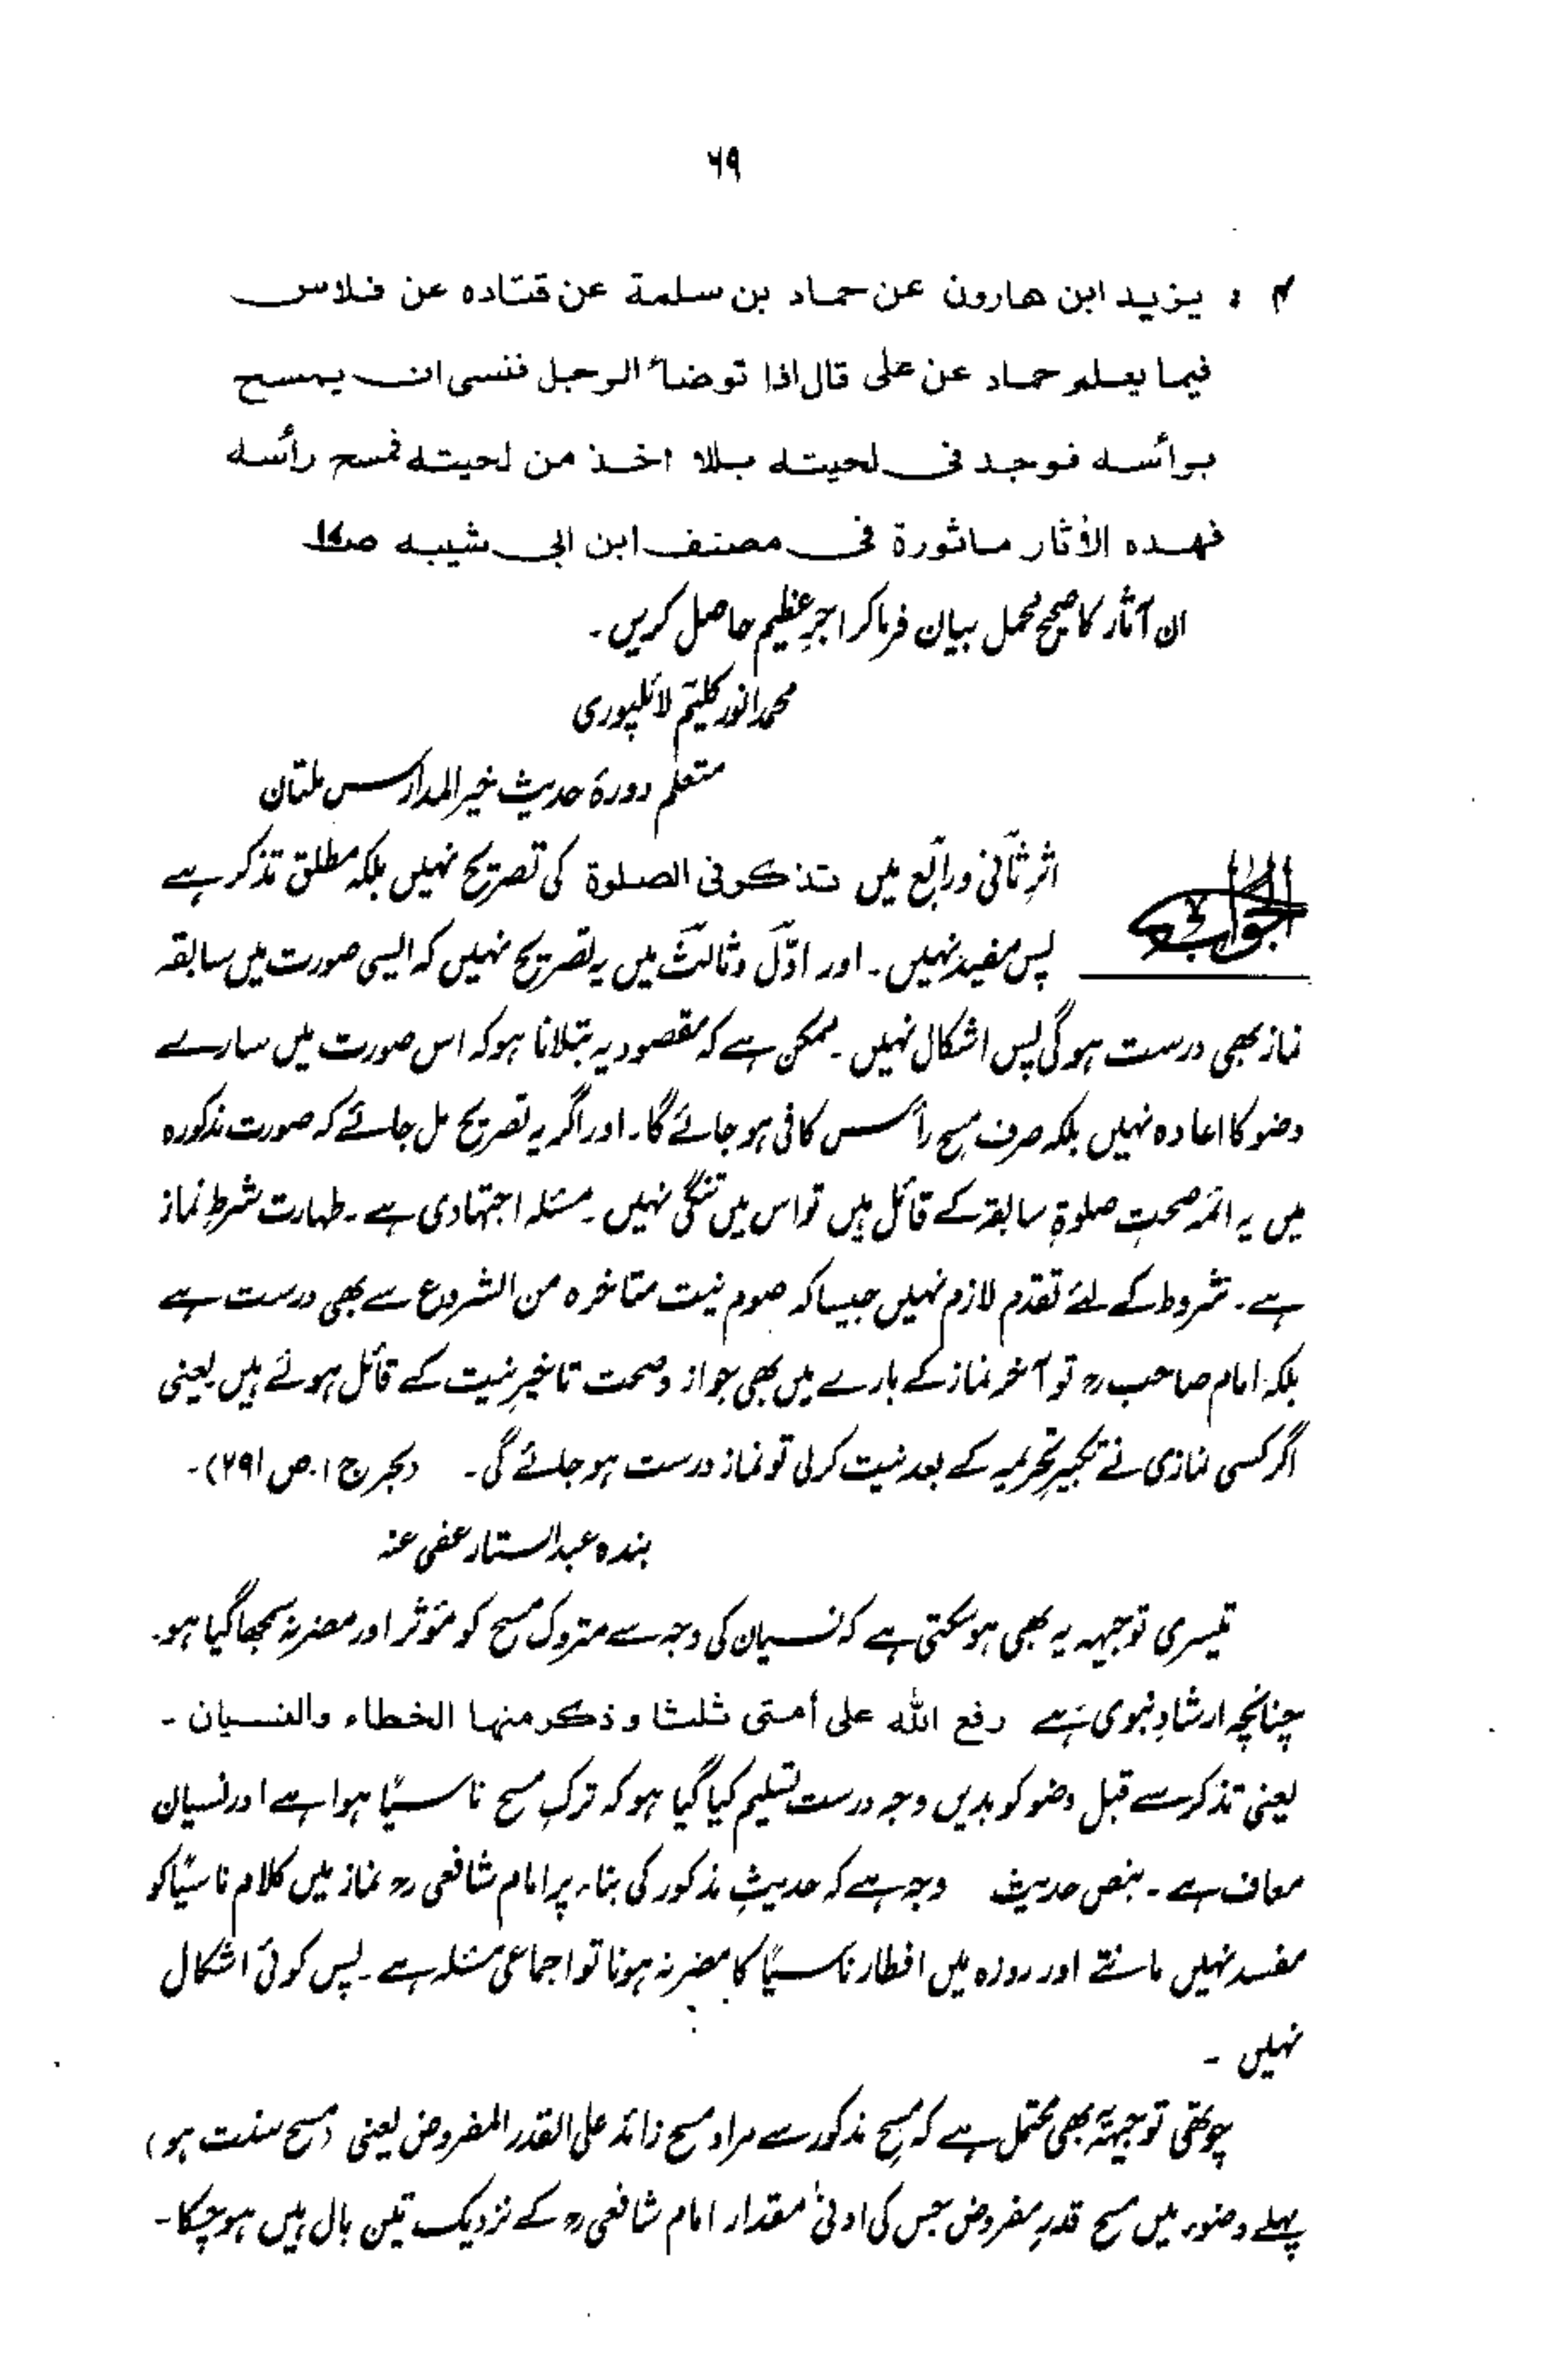 ۶۹
۴ : یزید ابن هارون عن حماد بن سلمة عن قتاده عن خلاس
فیما یعلم حماد عن علی قال اذا توضأ الرجل فنسی ان یمسح
برأسه فوجد فی لحیته بللا اخذ من لحیته فمسح رأسه
فهذه الأثار ماثورة فی مصنف ابن ابی شیبه
ان آثار کا صحیح محمل بیان فرماکر اجرِ عظیم حاصل کریں۔
محمد انور کلیم لائلپوری
متعلم دورۂ حدیث خیر المدارس ملتان
الجواب اثرِ ثانی و رابع میں تذکر فی الصلوة کی تصریح نہیں بلکہ مطلق تذکر ہے
پس مفید نہیں۔ اور اوّل و ثالث میں یہ تصریح نہیں کہ ایسی صورت میں سابقہ
نماز بھی درست ہوگی پس اشکال نہیں۔ ممکن ہے کہ مقصود یہ بتلانا ہو کہ اس صورت میں سارے
وضو کا اعادہ نہیں بلکہ صرف مسح رأس کافی ہو جائے گا۔ اور اگر یہ تصریح مل جائے کہ صورت مذکورہ
میں یہ ائمہ صحتِ صلوٰۃِ سابقہ کے قائل ہیں تو اس میں تنگی نہیں۔ مسئلہ اجتہادی ہے۔ طہارت شرطِ نماز
ہے۔ شروط کے لئے تقدم لازم نہیں جیسا کہ صوم نیت متاخرہ من الشروع سے بھی درست ہے
بلکہ امام صاحبؒ تو آخر نماز کے بارے میں بھی جواز و صحت تاخیرِ نیت کے قائل ہوئے ہیں یعنی
اگر کسی نمازی نے تکبیرِ تحریمہ کے بعد نیت کرلی تو نماز درست ہو جائے گی۔ (بحر ج ۱۔ ص ۲۹۱)۔
بندہ عبدالستار عفی عنہ
تیسری توجیہہ یہ بھی ہوسکتی ہے کہ نسیان کی وجہ سے متروک مسح کو مؤثر اور مضر نہ سمجھا گیا ہو۔
چنانچہ ارشادِ نبوی ہے رفع الله علی أمتی ثلثا و ذکر منها الخطاء والنسیان ۔
یعنی تذکر سے قبل وضو کو بدیں وجہ درست تسلیم کیا گیا ہو کہ ترکِ مسح ناسیًا ہوا ہے اور نسیان
معاف ہے۔ بنص حدیث وجہ ہے کہ حدیثِ مذکور کی بناء پر امام شافعیؒ نماز میں کلام ناسیًا کو
مفسد نہیں مانتے اور روزہ میں افطار ناسیًا کا مضر نہ ہونا تو اجماعی مسئلہ ہے۔ پس کوئی اشکال
نہیں ۔
چوتھی توجیہہ بھی محتمل ہے کہ مسح مذکور سے مراد مسح زائد علی القدر المفروض یعنی (مسح سنت ہو)
پہلے وضوء میں مسح قدرِ مفروض جس کی ادنیٰ مقدار امام شافعیؒ کے نزدیک تین بال ہیں ہوچکا۔